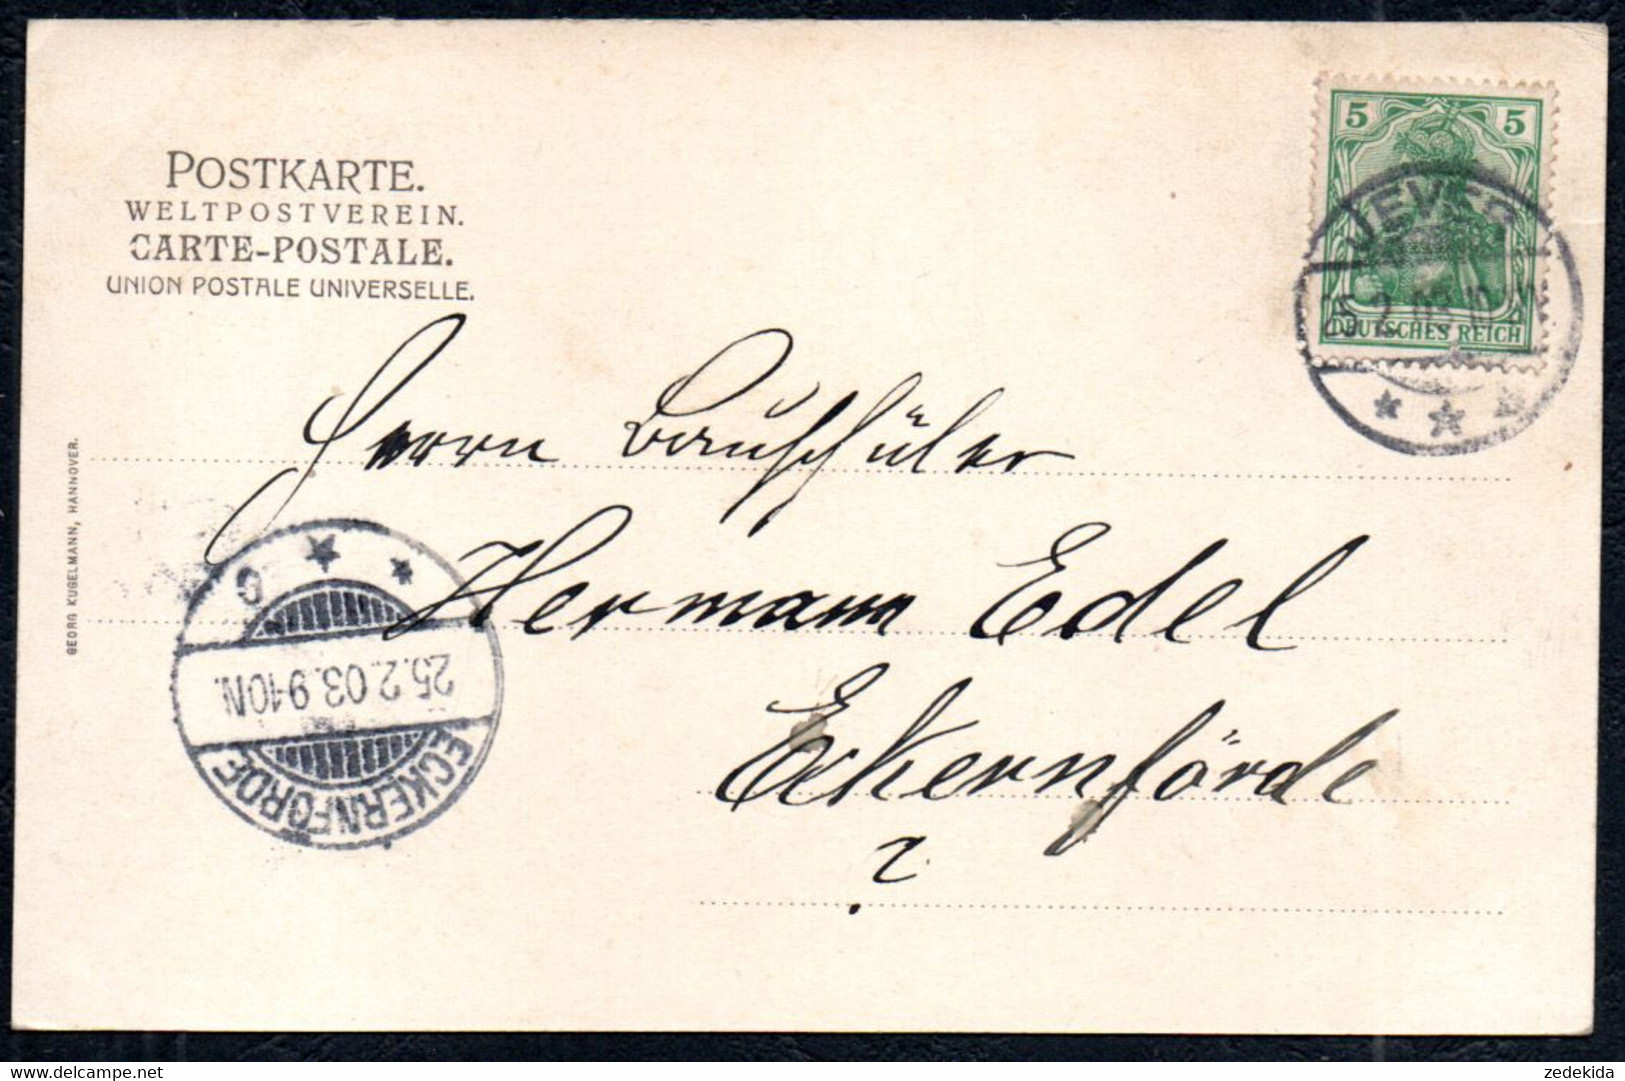 POSTKARTE.
WELTPOSTVEREIN.
CARTE-POSTALE.
UNION POSTALE UNIVERSELLE.
5 5
DEUTSCHES REICH
JEVER
25.2.03.10
Herrn Bauschüler
Hermann Edel
Eckernförde
?
GEORG KUGELMANN, HANNOVER.
ECKERNFÖRDE
25.2.03.9-10N.
c
zedekida